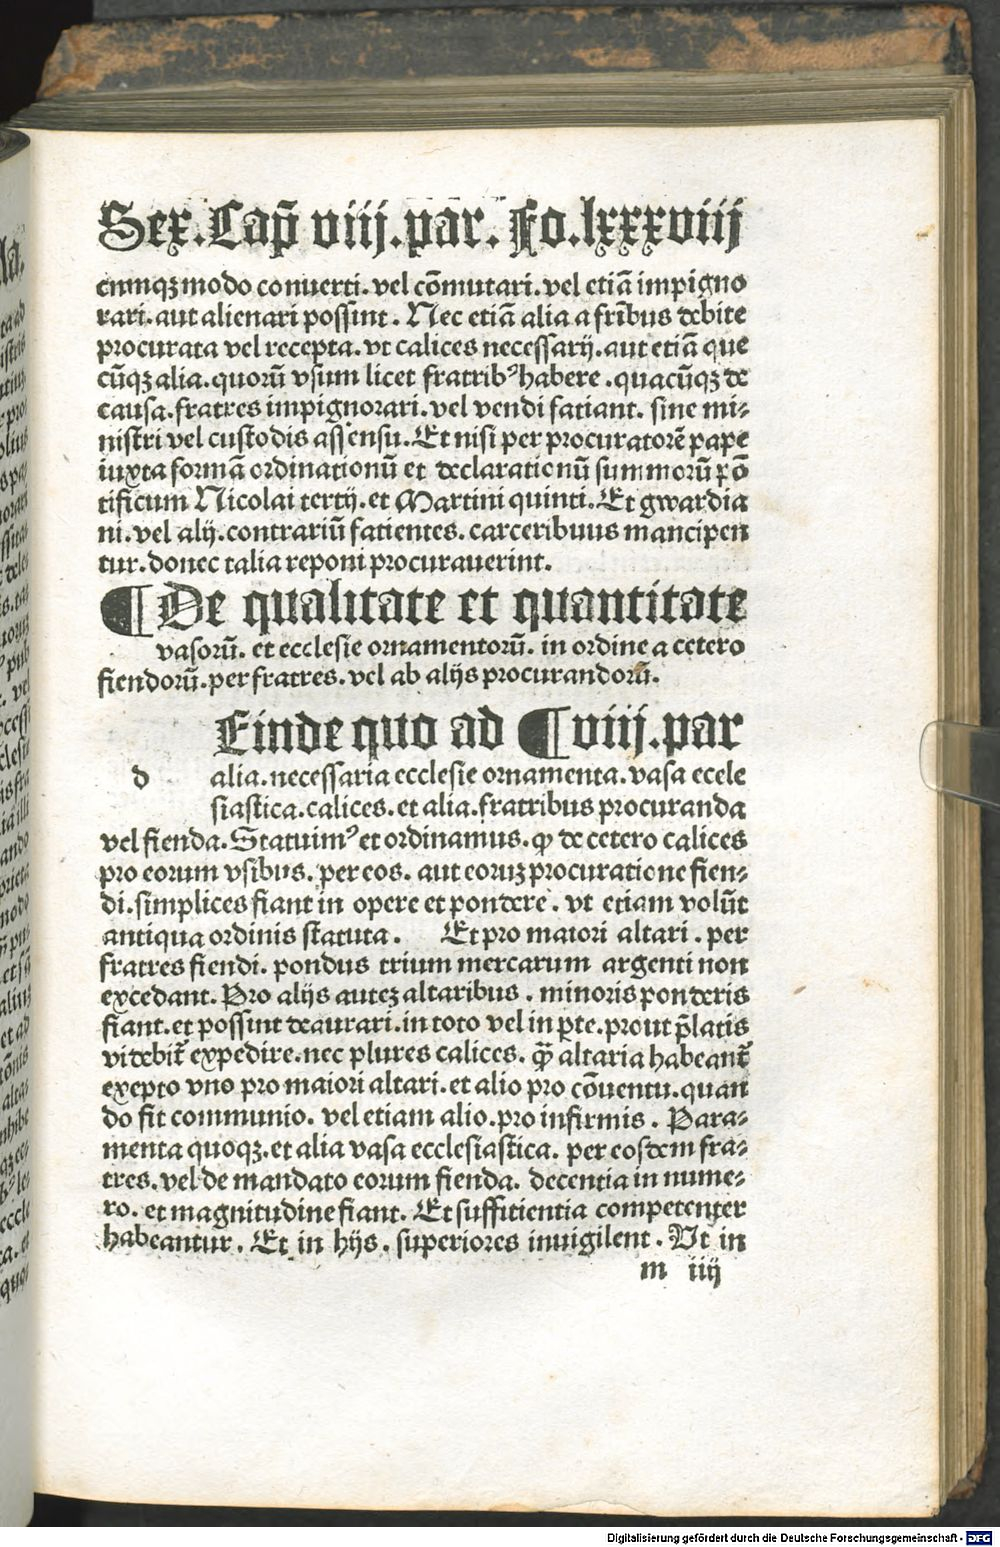 Sex. Cap̃ viij. par. Fo. lxxxviij
cunqꝫ modo conuerti. vel cõmutari. vel etiã impigno
rari. aut alienari possint. Nec etiã alia a frĩbus debite
procurata vel recepta. vt calices necessarij. aut etiã que
cũqꝫ alia. quorũ vsum licet fratribꝰ habere. quacũqꝫ de
causa. fratres impignorari. vel vendi fatiant. sine mi⸗
nistri vel custodis assensu. Et nisi per procuratorẽ pape
iuxta formã ordinationũ et declarationũ summorũ põ
tificum Nicolai tertij. et Martini quinti. Et gwardia
ni. vel alij. contrariũ fatientes. carceribuus mancipen
tur. donec talia reponi procurauerint.
¶ De qualitate et quantitate
vasorũ. et ecclesie ornamentorũ. in ordine a cetero
fiendorũ. per fratres. vel ab alijs procurandorũ.
Einde quo ad ¶ viij. par
d alia. necessaria ecclesie ornamenta. vasa eccle
siastica. calices. et alia. fratribus procuranda
vel fienda. Statuimꝰ et ordinamus. ꝙ de cetero calices
pro eorum vsibus. per eos. aut eoruꝫ procuratione fien⸗
di. simplices fiant in opere et pondere. vt etiam volũt
antiqua ordinis statuta. Et pro maiori altari. per
fratres fiendi. pondus trium mercarum argenti non
excedant. Pro alijs auteꝫ altaribus. minoris ponderis
fiant. et possint deaurari. in toto vel in ꝑte. prout p̃latis
videbit̃ expedire. nec plures calices. q̃ꝫ altaria habeant̃
exepto vno pro maiori altari. et alio pro cõuentu. quan
do fit communio. vel etiam alio. pro infirmis. Para⸗
menta quoqꝫ. et alia vasa ecclesiastica. per eosdem fra⸗
tres. vel de mandato eorum fienda. decentia in nume⸗
ro. et magnitudine fiant. Et suffitientia competenter
habeantur. Et in hijs. superiores inuigilent. Vt in
m iiij
Digitalisierung gefördert durch die Deutsche Forschungsgemeinschaft - DFG